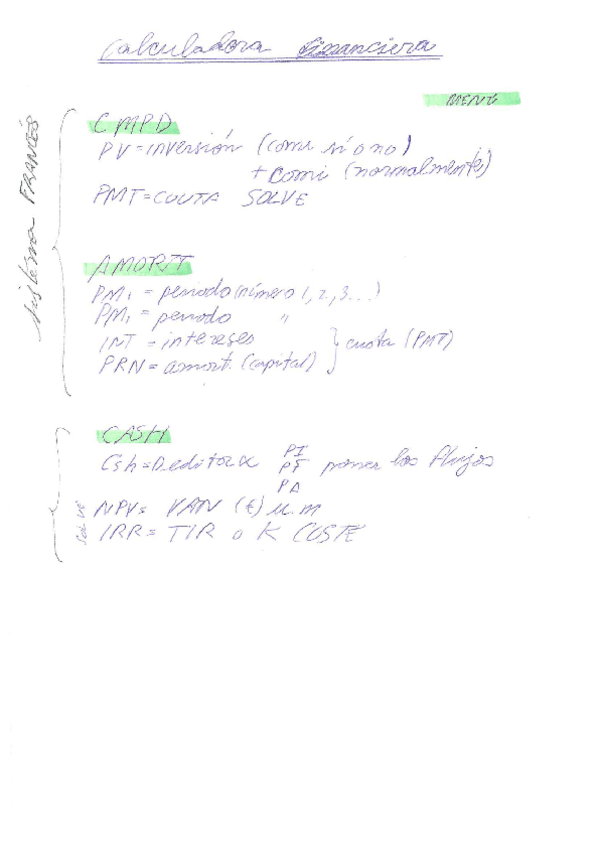 Calculadora Financiera
MENÚ
Sistema FRANCÉS
CMPD
PV = inversión (comi sí o no)
+ comi (normalmente)
PMT = CUOTA SOLVE
AMORT
PM₁ = periodo (número 1, 2, 3...)
PM₁ = periodo "
INT = intereses
PRN = amort. (capital) } cuota (PMT)
CASH
Csh = D.editor x PI
PF poner los flujos
PA
Solve
NPV = VAN (€) u.m
IRR = TIR o K COSTE